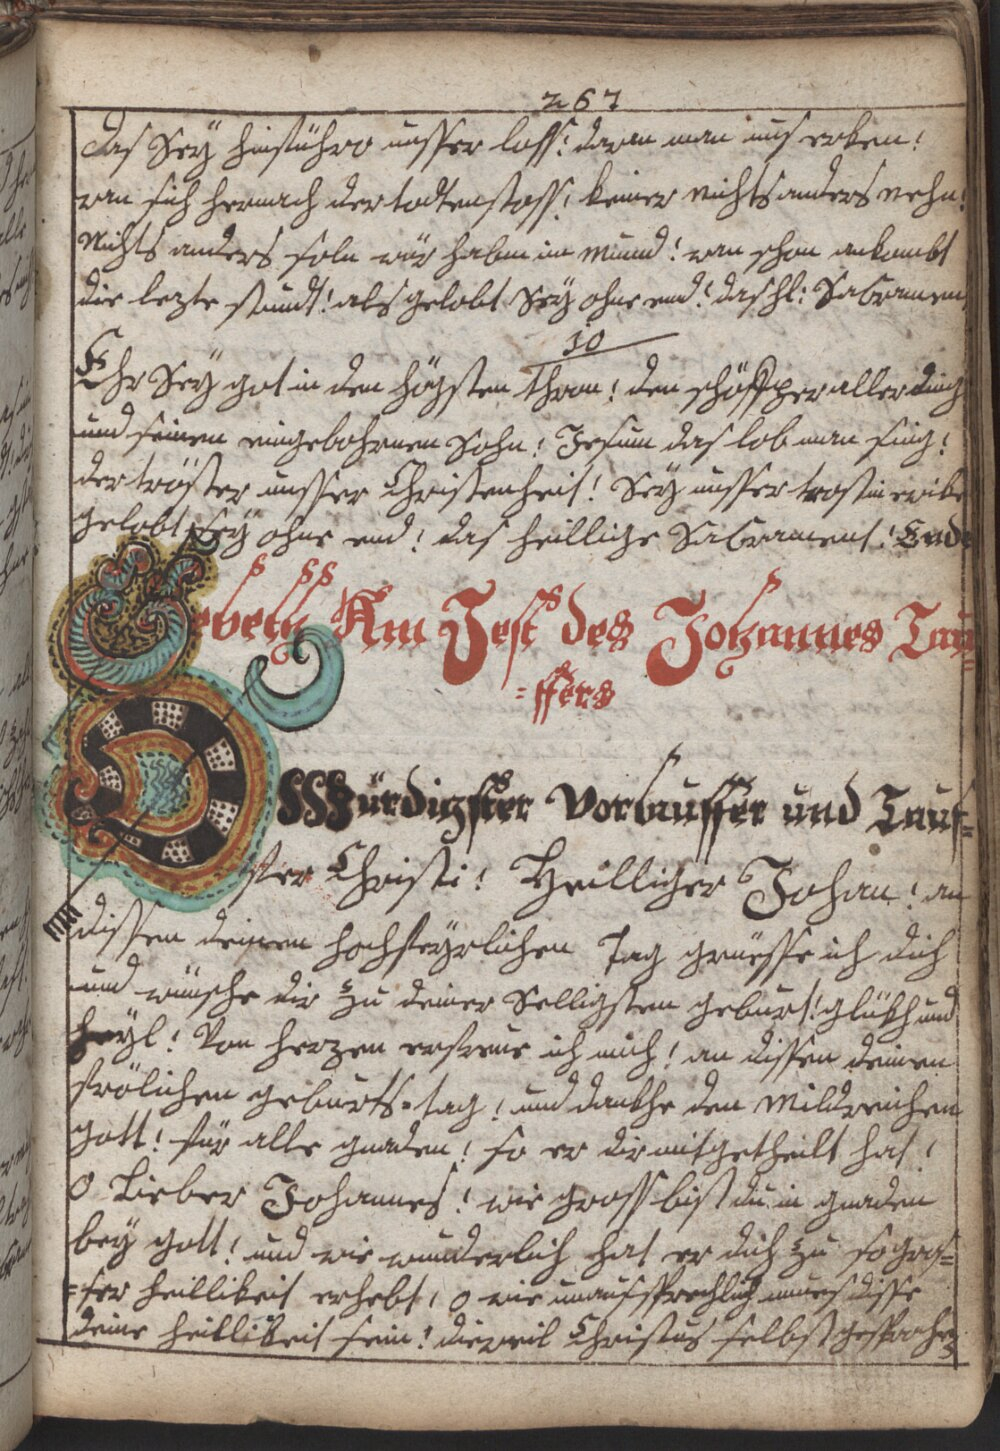 267
das Seÿ hinführo unsser loss! daran man uns erken!
wan sich hernach der todtenstoss! keiner nichts anders nehn!
Nichts anders soln wür haben im Mund! wan schon ankombt
die lezte stundt! als gelobt Seÿ ohne end! das hl: Sacramen
10
Ehr Seÿ got in den högsten Thron! den schöffper aller ding
und seinen eingebohrnen Sohn! Jesum das lob man sing!
der tröster unsser Christenheit! Seÿ unsser trost in
gelobt seÿ ohne end! das heillige Sacrament! Ende
Gebett Am Fest des Johannes Tau=
=ffers
O Würdigster Vorlauffer und Tauf=
ffer Christi! Heilliger Johan! an
dissen deinem hochfeÿrlichen Tag grüesse ich dich
und wünsche dir zu deiner Selligsten geburt! glükh und
heÿl! Von herzen erfreue ich mich! an dissen deinen
frölichen geburts=tag! und dankhe den Mildreichen
gott! für alle gnaden! so er dir mitgetheilt hat!
O Lieber Johannes! wie gross bist du in gnaden
beÿ gott! und wie wunderlich hat er dich zu so gros=
=ser heillikeit erhebt, o wie unaufsprechlich mues disse
deine heillikeit sein! dieweil Christus selbst gesprochen